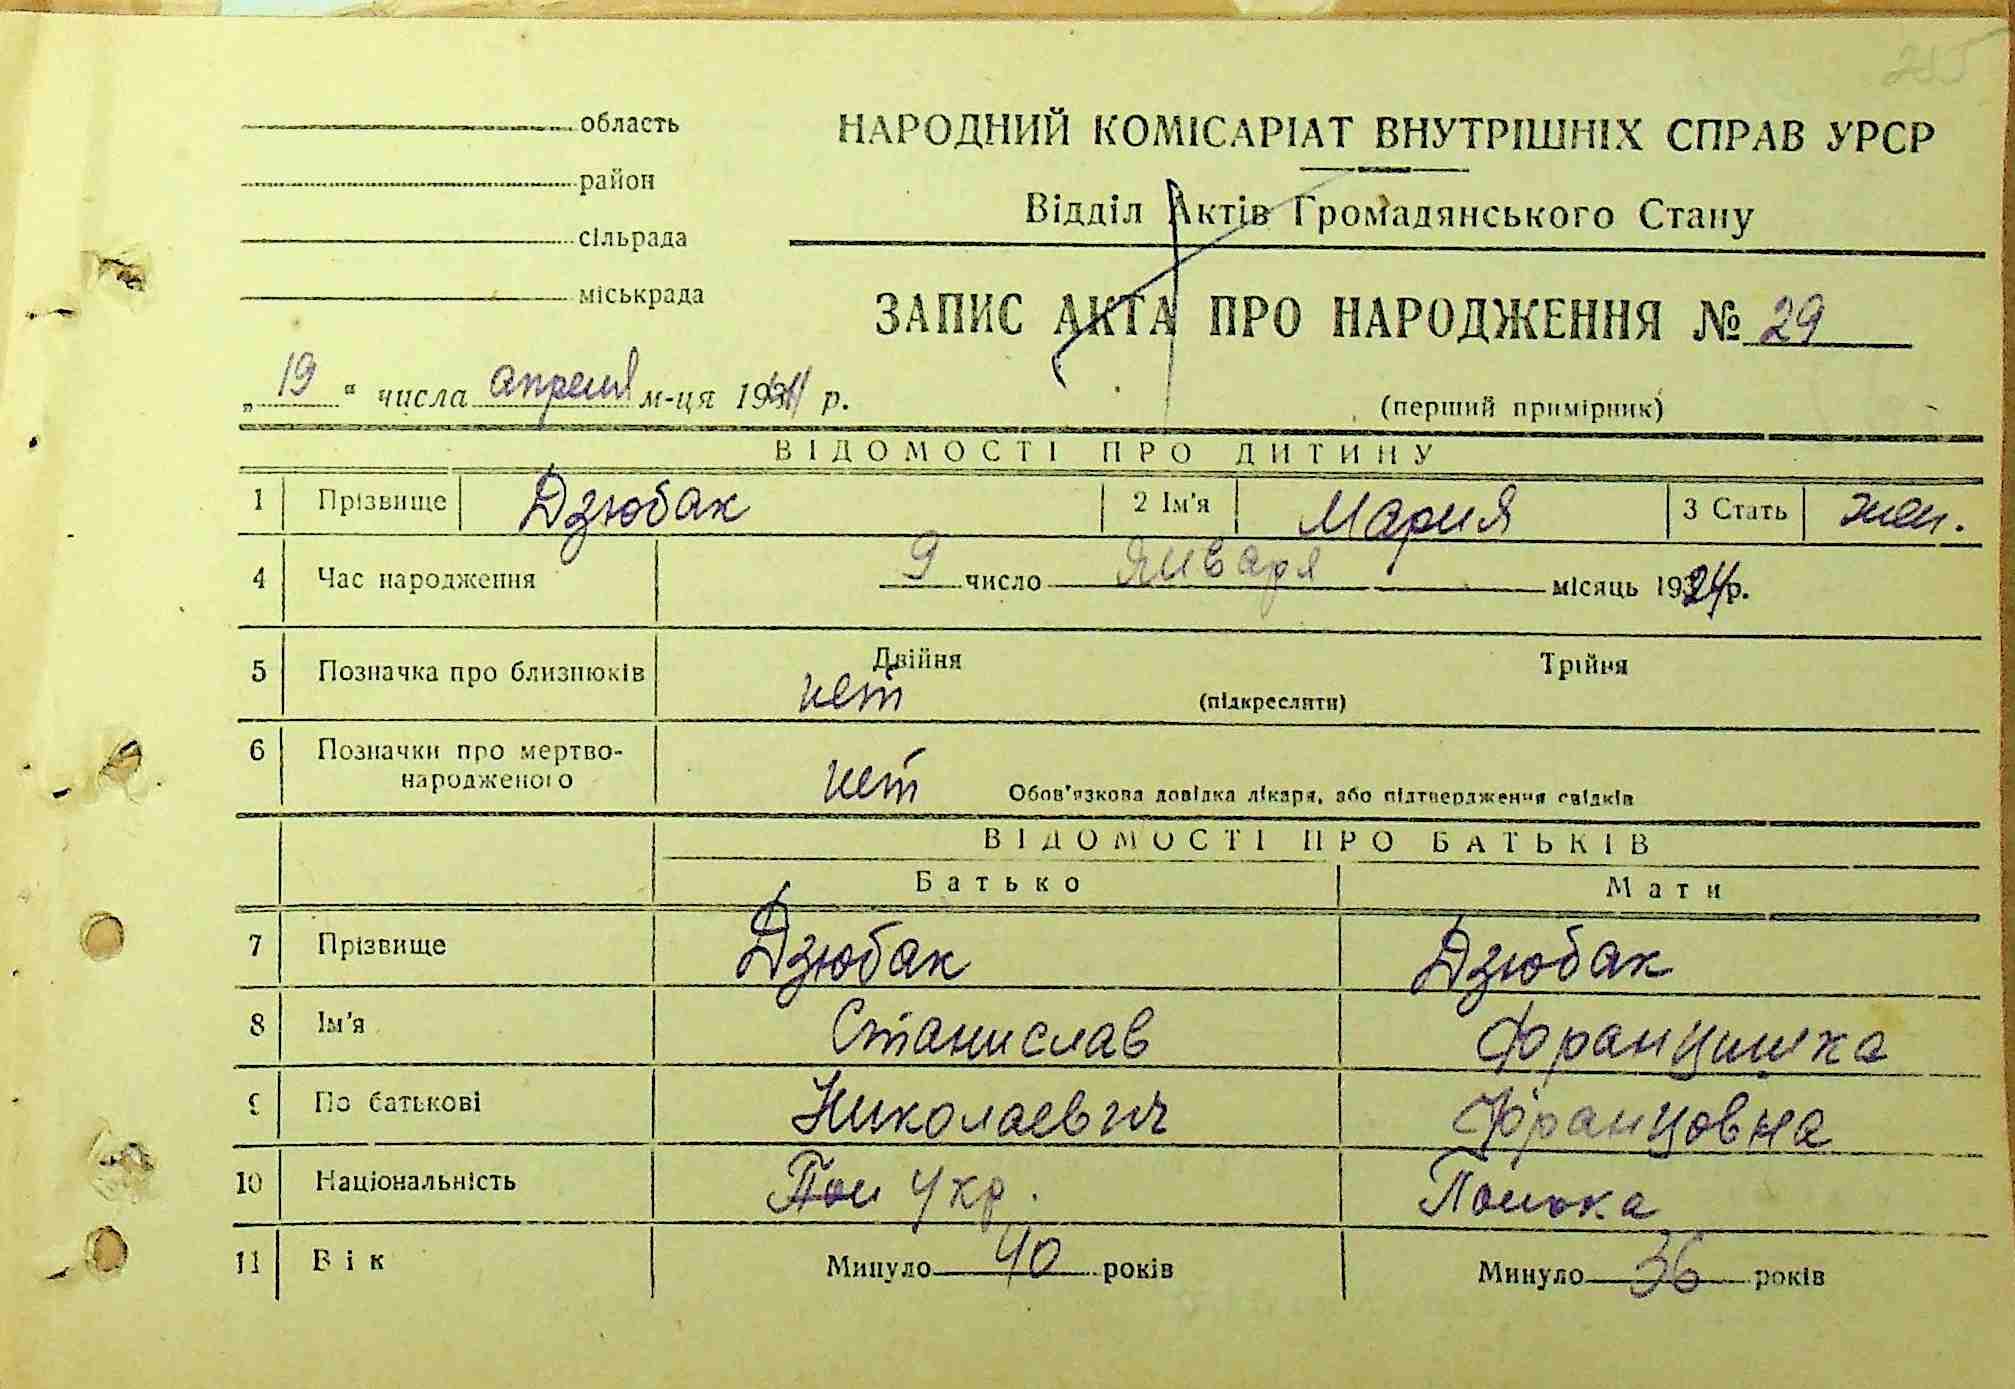 область
НАРОДНИЙ КОМІСАРІАТ ВНУТРІШНІХ СПРАВ УРСР
район
Відділ Актів Громадянського Стану
сільрада
міськрада
ЗАПИС АКТА ПРО НАРОДЖЕННЯ № 29
„19" числа апреля м-ця 1941 р.
(перший примірник)
ВІДОМОСТІ ПРО ДИТИНУ
1 Прізвище Дзюбак 2 Ім'я Мария 3 Стать жен.
4 Час народження 9 число января місяць 1924 р.
5 Позначка про близнюків Двійня Трійня
нет (підкреслити)
6 Позначки про мертво-
народженого нет Обов'язкова довідка лікаря, або підтвердження свідків
ВІДОМОСТІ ПРО БАТЬКІВ
Батько Мати
7 Прізвище Дзюбак Дзюбак
8 Ім'я Станислав Францишка
9 По батькові Николаевич Францовна
10 Національність Пол укр. Полька
11 Вік Минуло 40 років Минуло 36 років